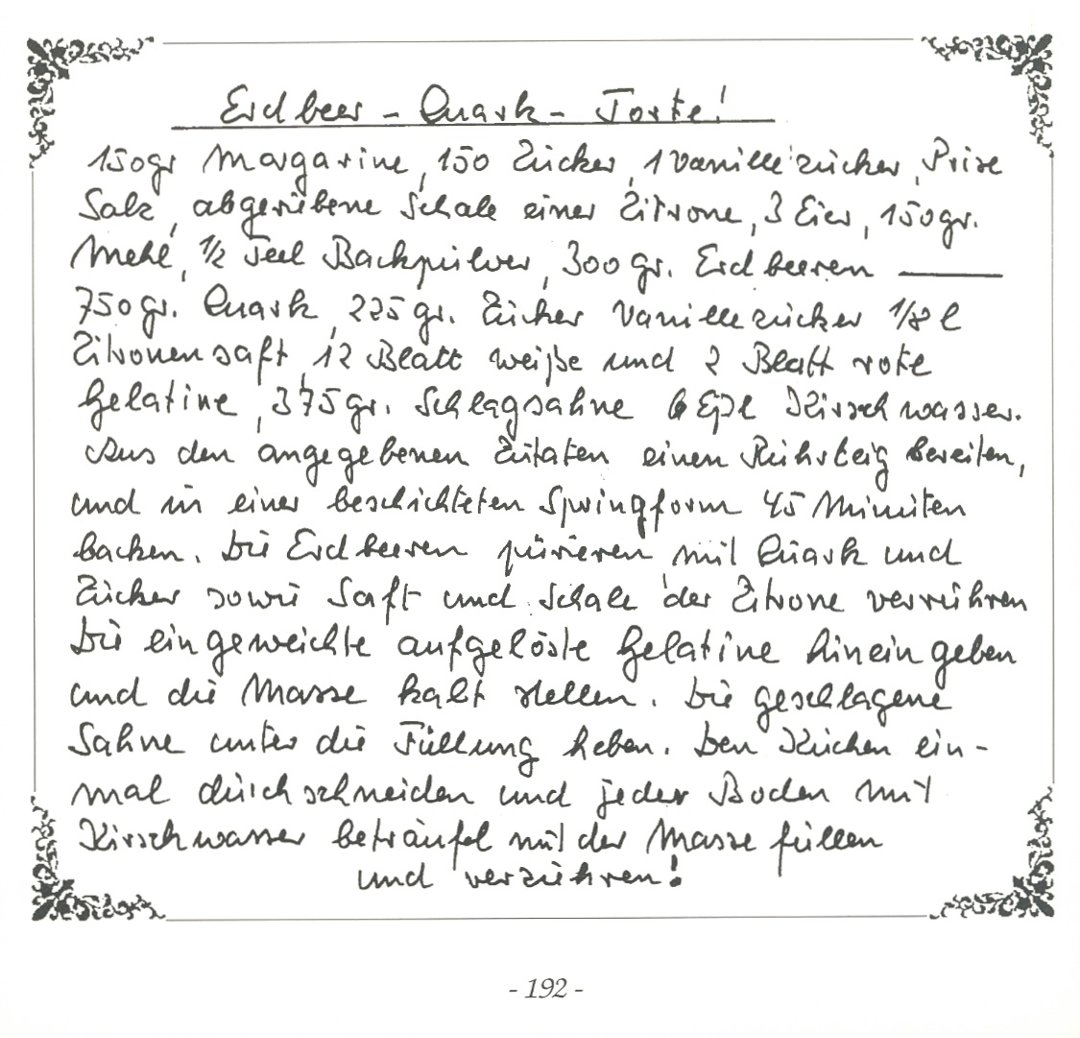 Erdbeer - Quark - Torte!
150gr Margarine, 150 Zucker, 1 Vanillezucker, Prise
Salz, abgeriebene Schale einer Zitrone, 3 Eier, 150gr.
Mehl, 1/2 Teel Backpulver, 300 gr. Erdbeeren ———
750gr. Quark, 225 gr. Zucker Vanillezucker 1/8 l
Zitronensaft, 12 Blatt weiße und 2 Blatt rote
Gelatine, 375gr. Schlagsahne 6 Eßl Kirschwasser.
Aus den angegebenen Zutaten einen Rührteig bereiten,
und in einer beschichteten Springform 45 Minuten
backen. Die Erdbeeren pürieren, mit Quark und
Zucker sowie Saft und Schale der Zitrone verrühren
Die eingeweichte aufgelöste Gelatine hinein geben
und die Masse kalt stellen. Die geschlagene
Sahne unter die Füllung heben. Den Kuchen ein-
mal durchschneiden und jeder Boden mit
Kirschwasser beträufel mit der Masse füllen
und verzühren!
- 192 -